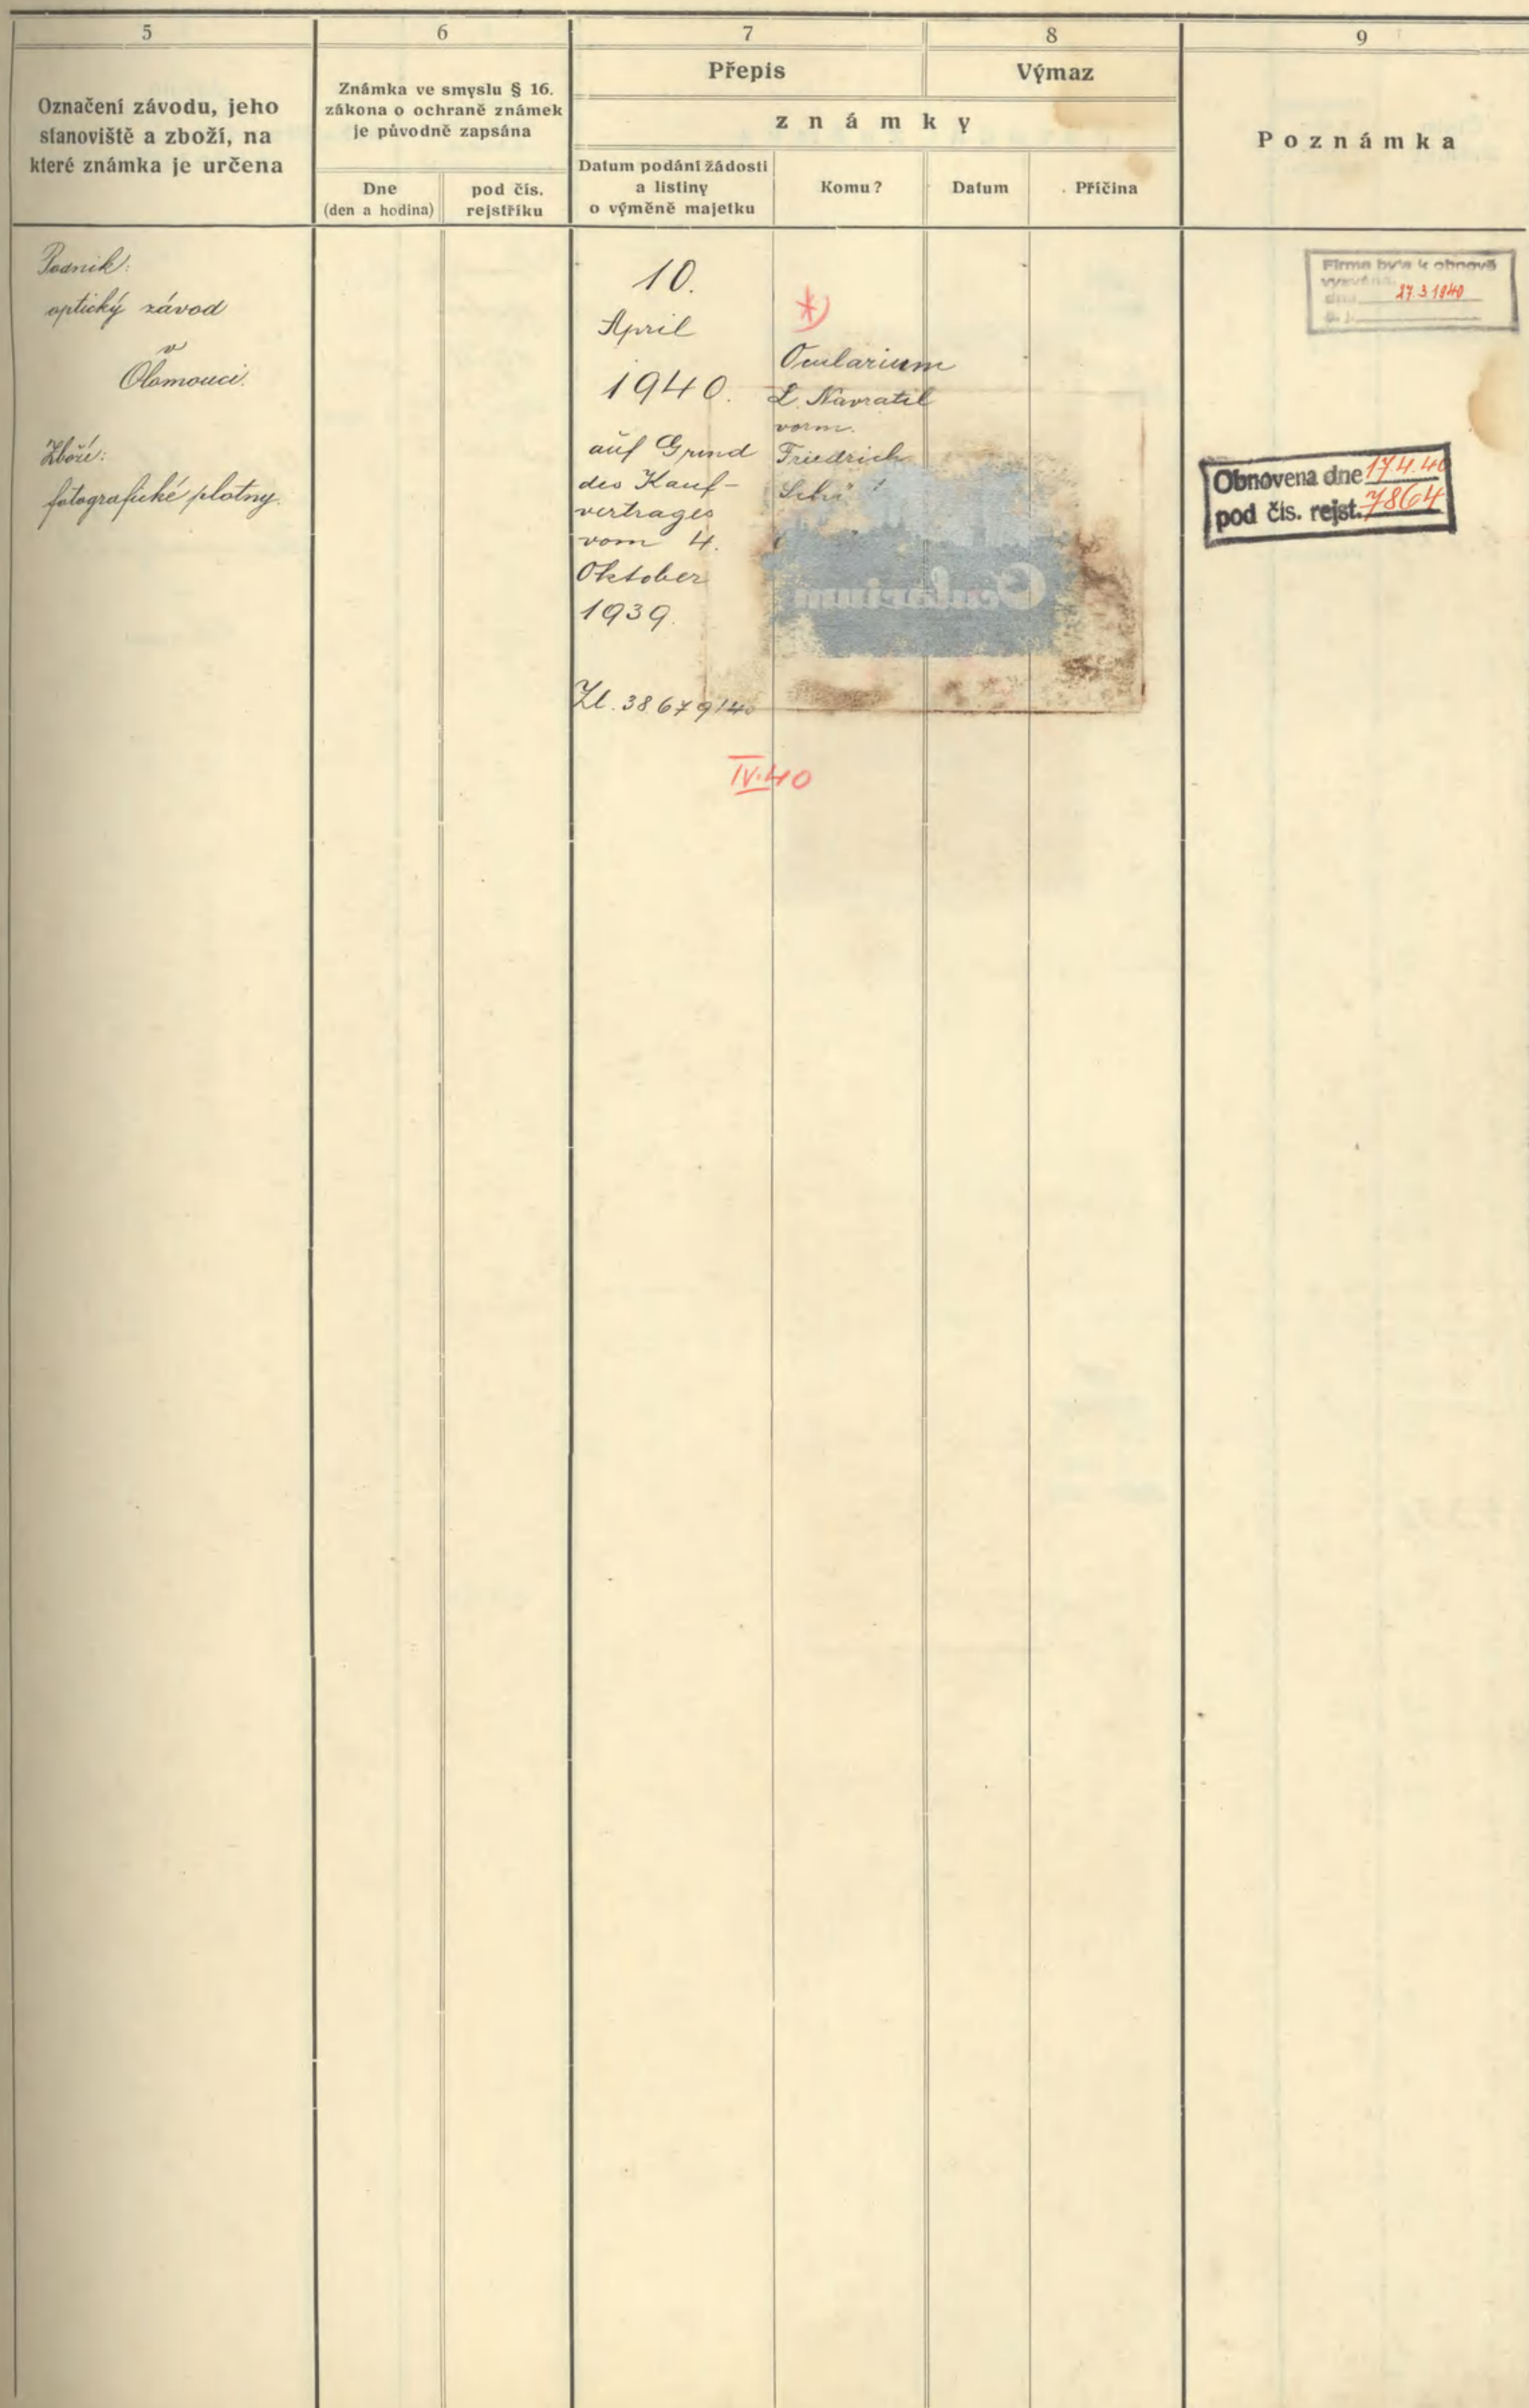 5
6
7
8
9
Označení závodu, jeho
stanoviště a zboží, na
které známka je určena
Známka ve smyslu § 16.
zákona o ochraně známek
je původně zapsána
Dne
(den a hodina)
pod čís.
rejstříku
Přepis
Výmaz
známky
Datum podání žádosti
a listiny
o výměně majetku
Komu?
Datum
Příčina
Poznámka
Podnik:
optický závod
v
Olomouci.
Zboží:
fotografické plotny.
10.
April
1940.
auf Grund
des Kauf-
vertrages
vom 4.
Oktober
1939.
Zl. 38679/40
IV.40
*)
Ocularium
L. Navratil
vorm.
Friedrich
Ocularium
Firma byla k obnově
vyzvána
dne 27.3.1940
Obnovena dne 17.4.40
pod čís. rejst. 7864